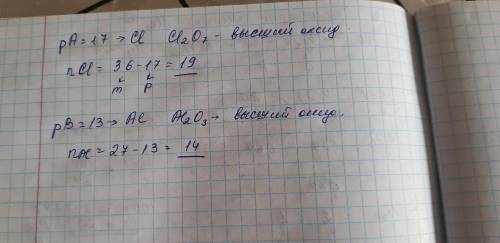 pA = 17 → Cl Cl₂O₇ - высший оксид
nCl = 36 - 17 = 19
m p
pB = 13 → Al Al₂O₃ → высший оксид.
nAl = 27 - 13 = 14